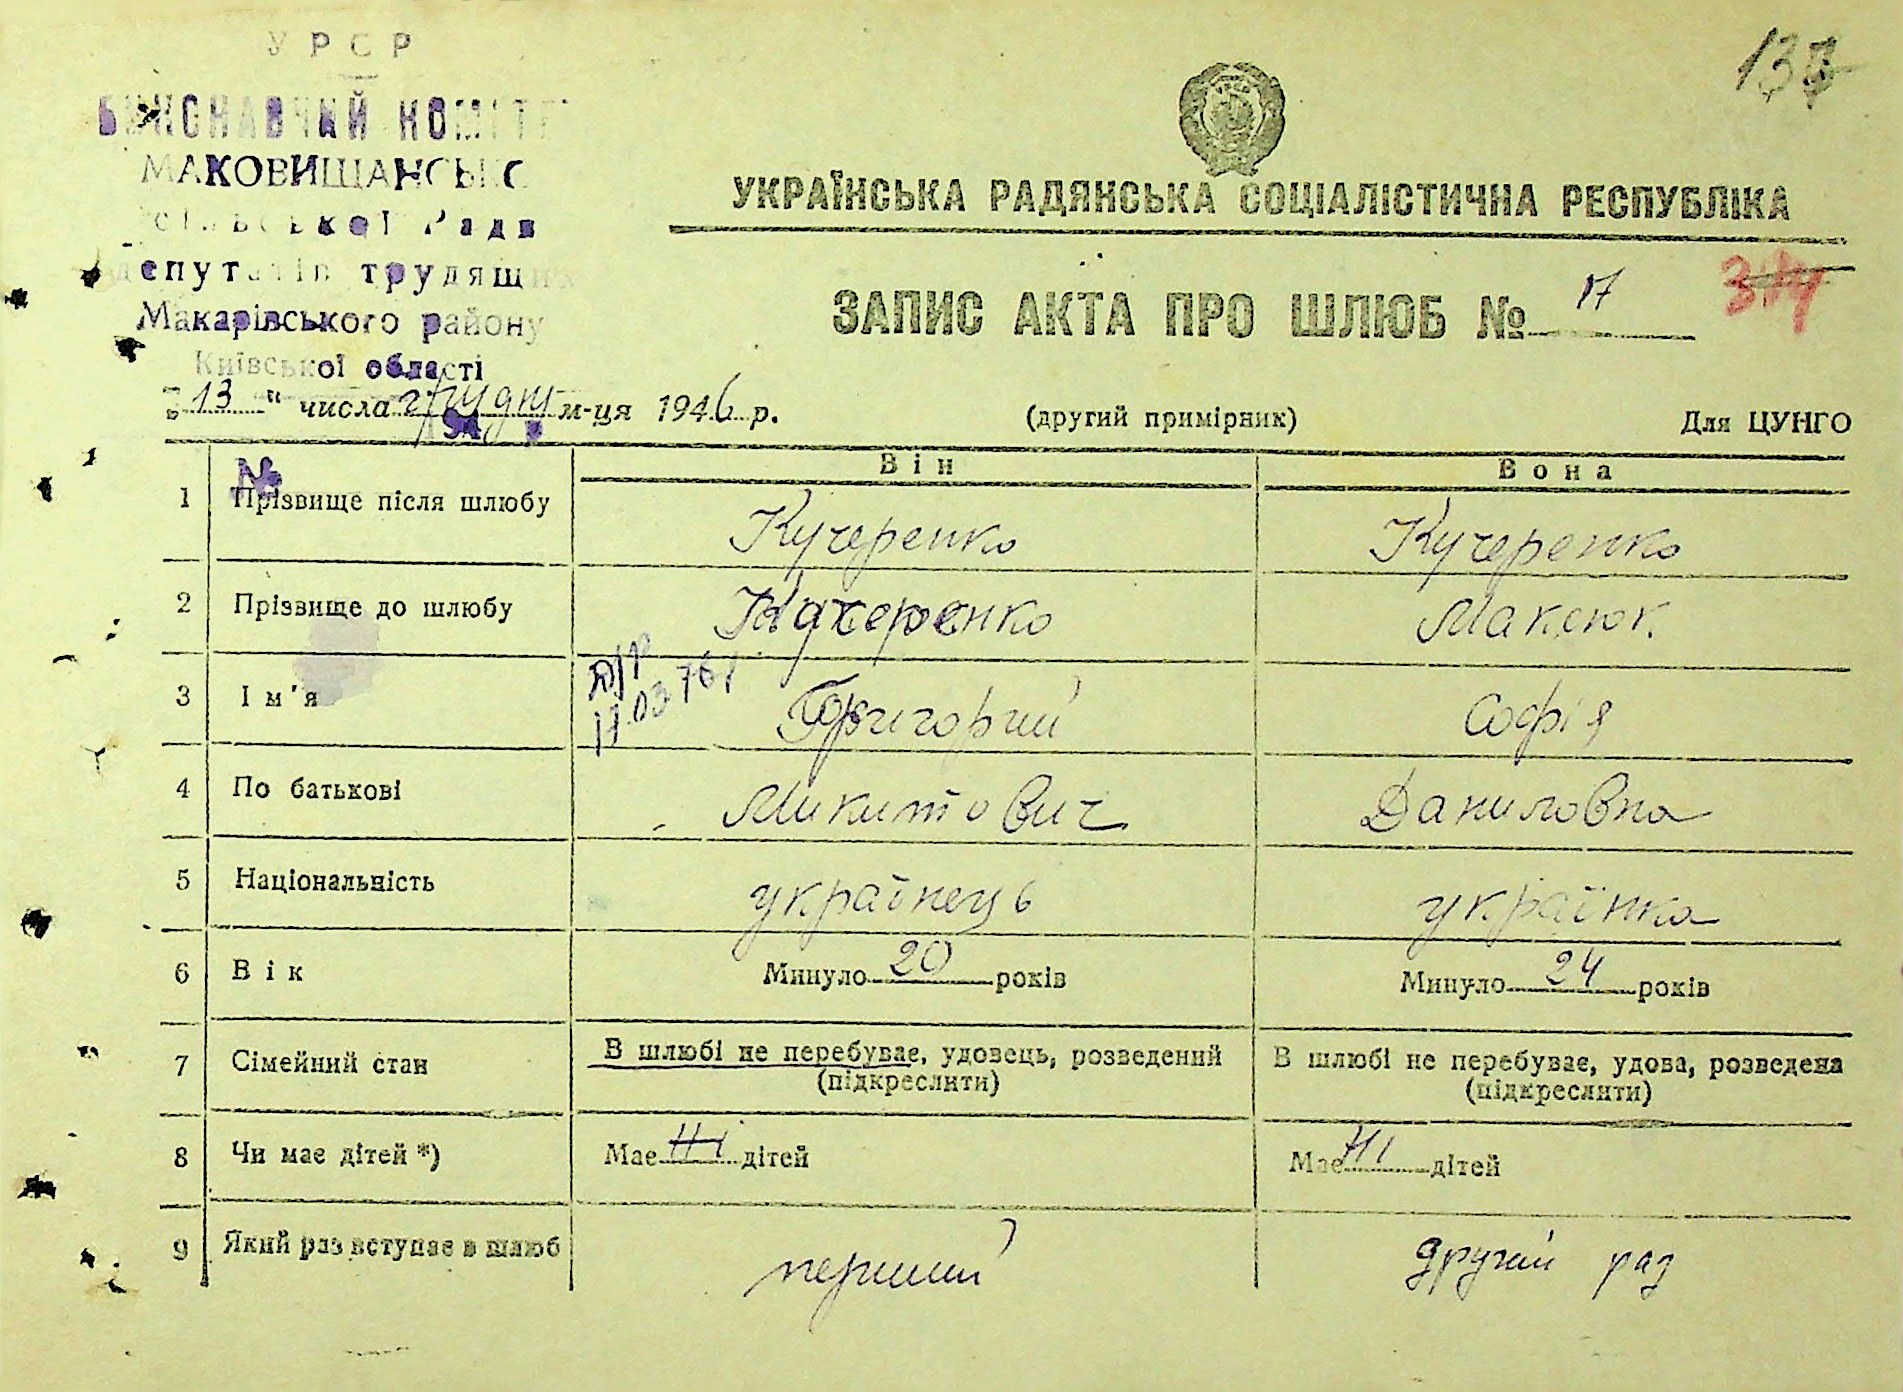 УРСР
ВИКОНАВЧИЙ КОМІТЕ
МАКОВИЩАНСЬКО
сільської Ради
депутатів трудящих
Макарівського району
Київської області
137
УКРАЇНСЬКА РАДЯНСЬКА СОЦІАЛІСТИЧНА РЕСПУБЛІКА
ЗАПИС АКТА ПРО ШЛЮБ № 17
„13“ числа грудня м-ця 1946 р.
(другий примірник)
Для ЦУНГО
№
Він Вона
1 Прізвище після шлюбу Кучеренко Кучеренко
2 Прізвище до шлюбу Кучеренко Максюк.
17.03.76
3 Ім'я Григорий Софія
4 По батькові Микитович Даниловна
5 Національність українець українка
6 Вік Минуло 20 років Минуло 24 років
7 Сімейний стан В шлюбі не перебуває, удовець, розведений В шлюбі не перебуває, удова, розведена
(підкреслити) (підкреслити)
8 Чи має дітей *) Має Ні дітей Має Ні дітей
9 Який раз вступає в шлюб перший другий раз